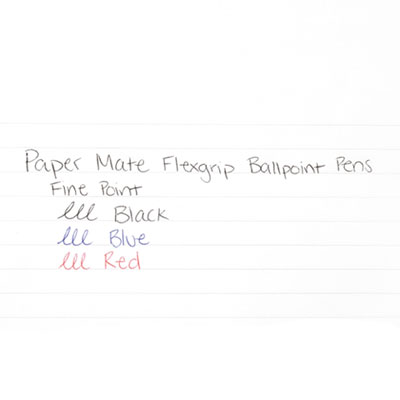 Paper Mate Flexgrip Ballpoint Pens
Fine Point
lll Black
lll Blue
lll Red